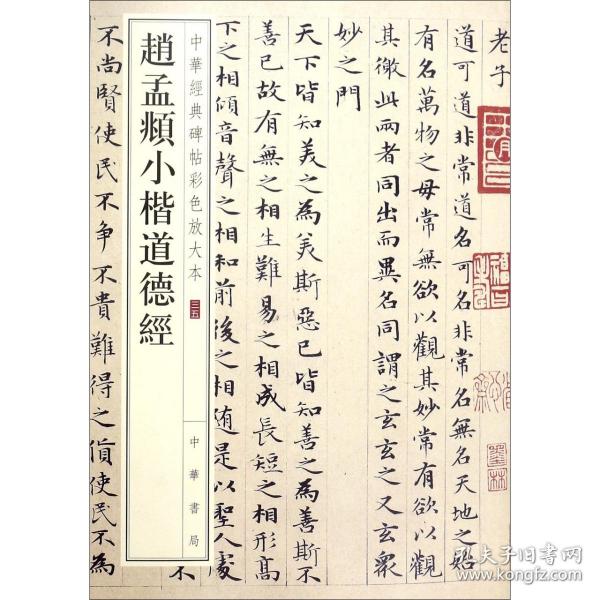 老子
道可道非常道名可名非常名無名天地之始
有名萬物之毋常無欲以觀其妙常有欲以觀
其徼此兩者同出而異名同謂之玄玄之又玄衆
妙之門
天下皆知美之為美斯惡已皆知善之為善斯不
善已故有無之相生難易之相成長短之相形高
下之相傾音聲之相和前後之相随是以聖人處
不
中華經典碑帖彩色放大本 三五
中華書局
趙孟頫小楷道德經
不尚賢使民不争不貴難得之貨使民不為
墨林
孔夫子旧书网
kongfz.com